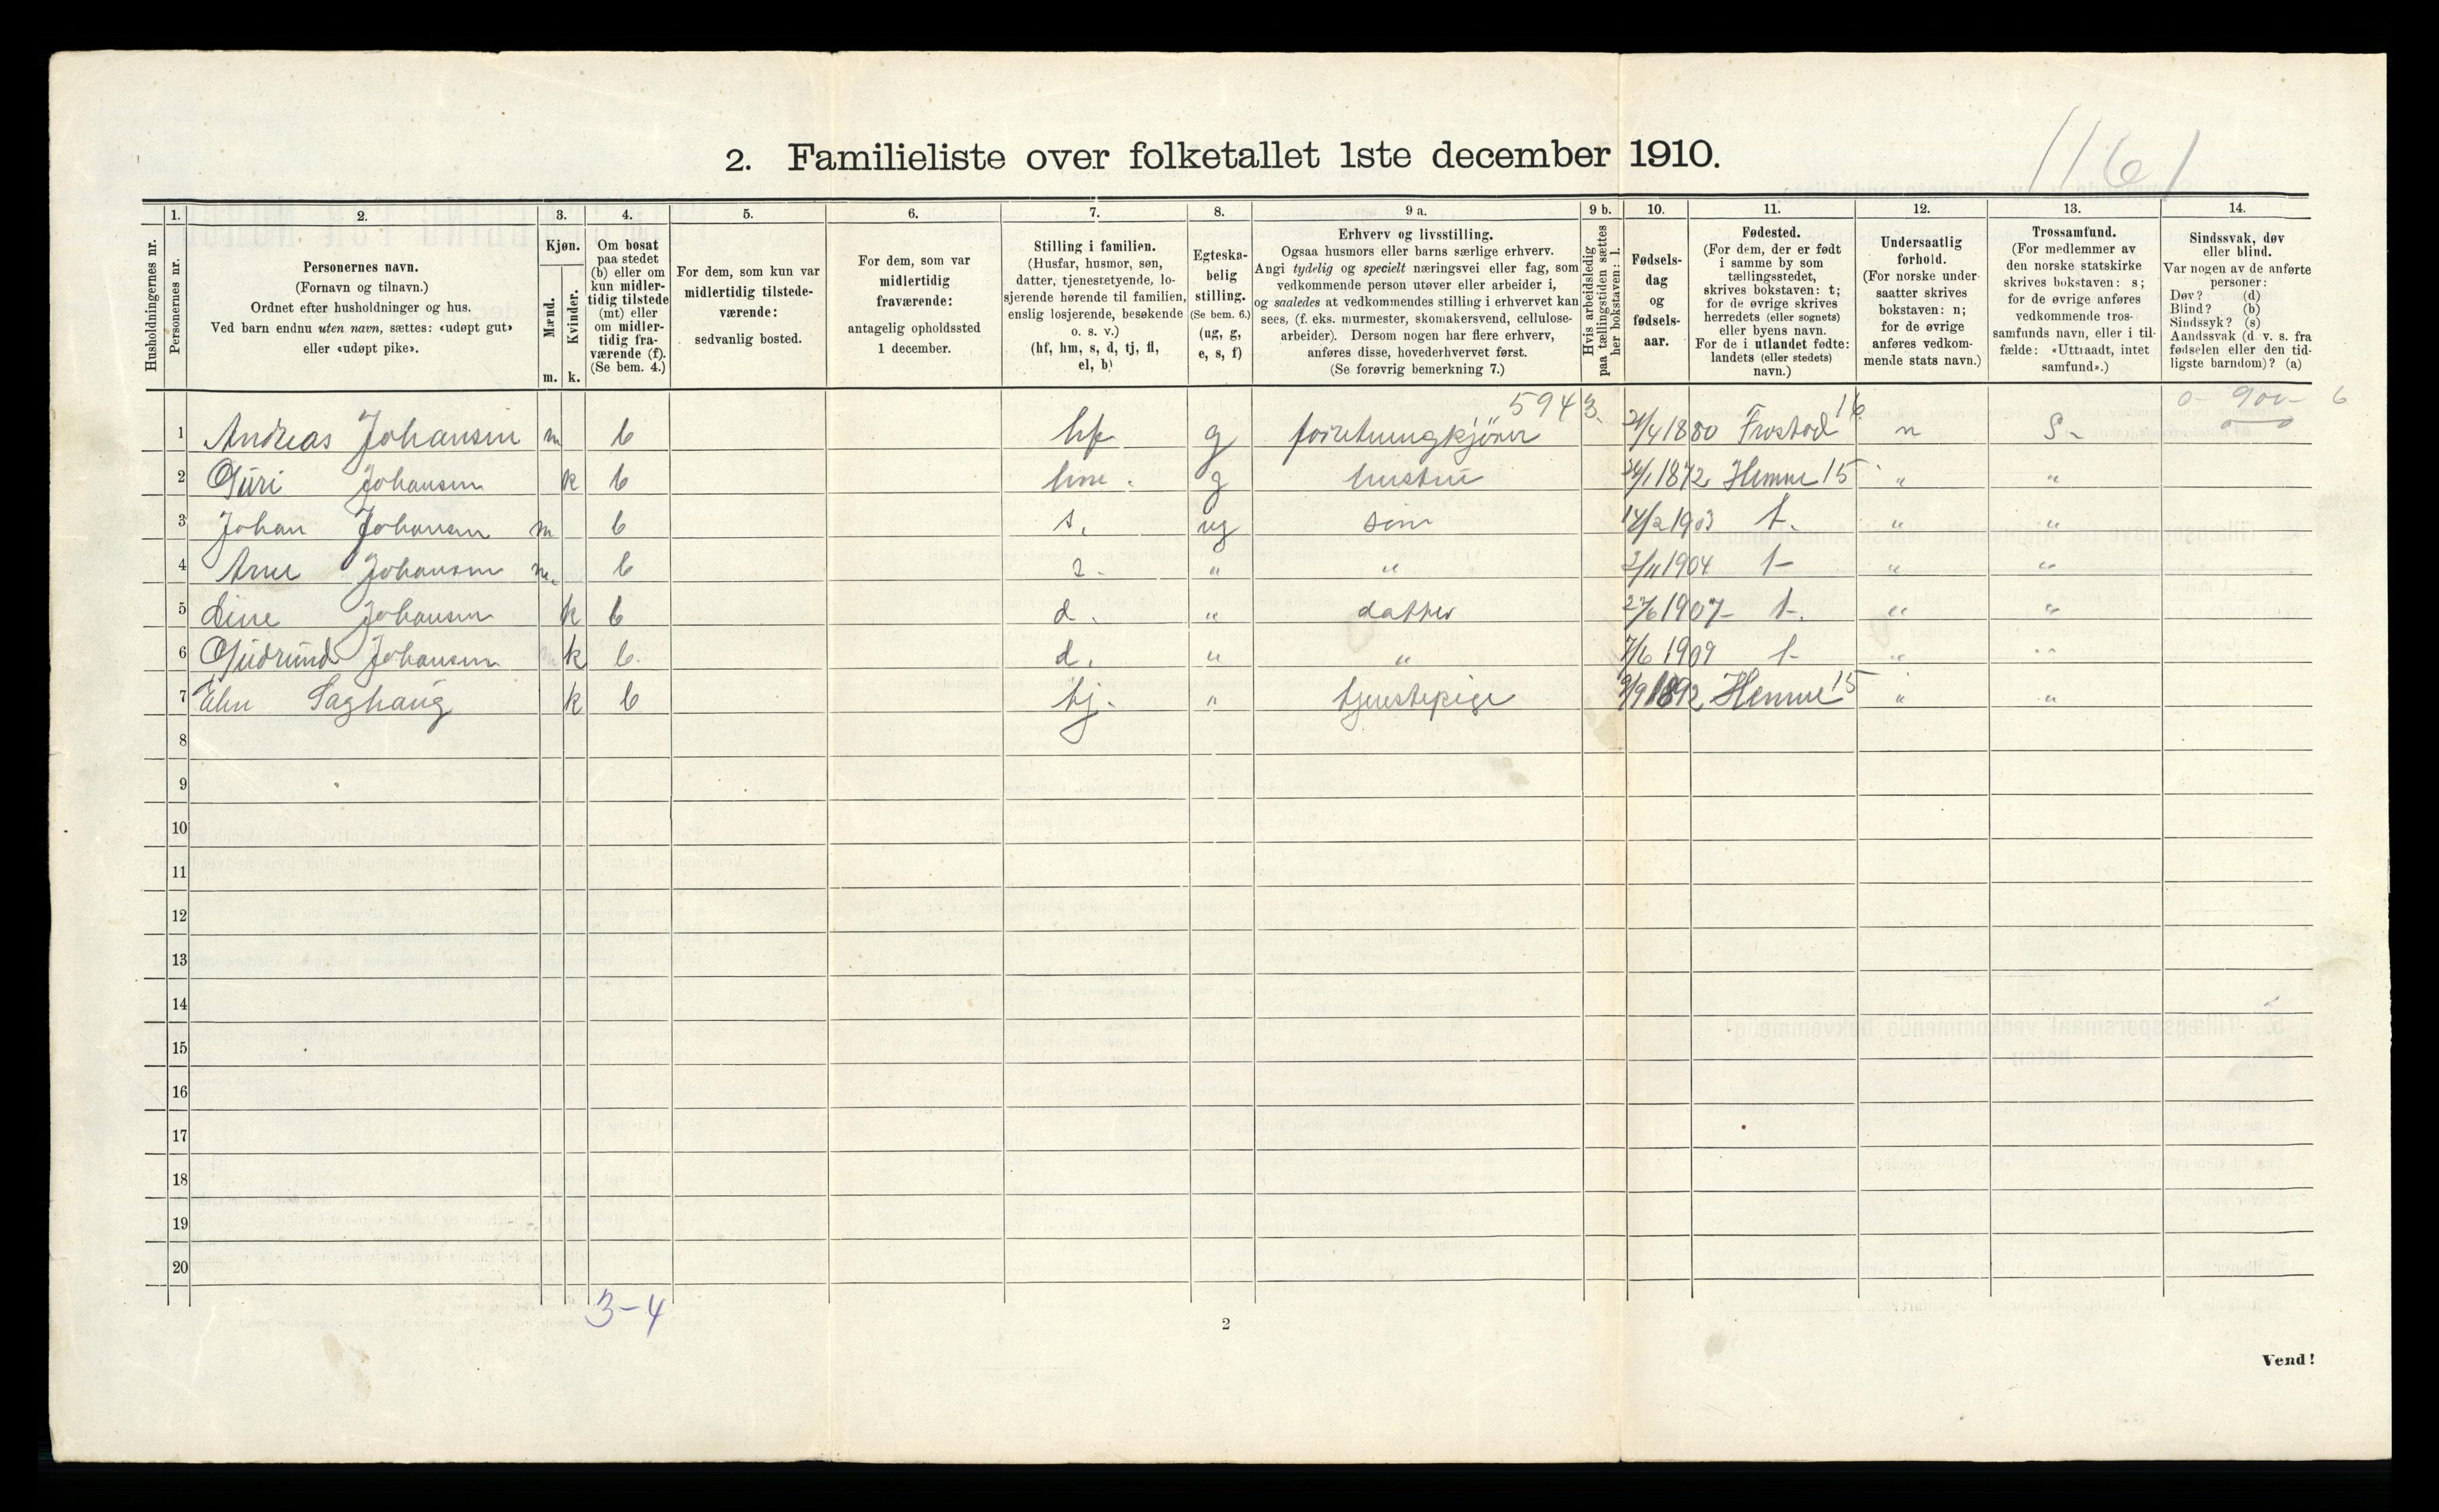 1161
2. Familieliste over folketallet 1ste december 1910.
1. 2. 3. 4. 5. 6. 7. 8. 9 a. 9 b. 10. 11. 12. 13. 14.
Husholdningernes nr.
Personernes nr.
Personernes navn.
(Fornavn og tilnavn.)
Ordnet efter husholdninger og hus.
Ved barn endnu uten navn, sættes: «udøpt gut»
eller «udøpt pike».
Kjøn.
Mænd.
Kvinder.
m. k.
Om bosat
paa stedet
(b) eller om
kun midler-
tidig tilstede
(mt) eller
om midler-
tidig fra-
værende (f).
(Se bem. 4.)
For dem, som kun var
midlertidig tilstede-
værende:
sedvanlig bosted.
For dem, som var
midlertidig
fraværende:
antagelig opholdssted
1 december.
Stilling i familien.
(Husfar, husmor, søn,
datter, tjenestetyende, lo-
sjerende hørende til familien,
enslig losjerende, besøkende
o. s. v.)
(hf, hm, s, d, tj, fl,
el, b)
Egteska-
belig
stilling.
(Se bem. 6.)
(ug, g,
e, s, f)
Erhverv og livsstilling.
Ogsaa husmors eller barns særlige erhverv.
Angi tydelig og specielt næringsvei eller fag, som
vedkommende person utøver eller arbeider i,
og saaledes at vedkommendes stilling i erhvervet kan
sees, (f. eks. murmester, skomakersvend, cellulose-
arbeider). Dersom nogen har flere erhverv,
anføres disse, hovederhvervet først.
(Se forøvrig bemerkning 7.)
Hvis arbeidsledig
paa tællingstiden sættes
her bokstaven: l.
Fødsels-
dag
og
fødsels-
aar.
Fødested.
(For dem, der er født
i samme by som
tællingsstedet,
skrives bokstaven: t;
for de øvrige skrives
herredets (eller sognets)
eller byens navn.
For de i utlandet fødte:
landets (eller stedets)
navn.)
Undersaatlig
forhold.
(For norske under-
saatter skrives
bokstaven: n;
for de øvrige
anføres vedkom-
mende stats navn.)
Trossamfund.
(For medlemmer av
den norske statskirke
skrives bokstaven: s;
for de øvrige anføres
vedkommende tros-
samfunds navn, eller i til-
fælde: «Uttraadt, intet
samfund».)
Sindssvak, døv
eller blind.
Var nogen av de anførte
personer:
Døv? (d)
Blind? (b)
Sindssyk? (s)
Aandssvak (d. v. s. fra
fødselen eller den tid-
ligste barndom)? (a)
5943. 16 0- 900- 6
1 Andreas Johansen m b hf g 1880 Frostad n S-
2 Guri Johansen k b g hustru 1872 Hemne 15 " "
3 Johan Johansen m b s. ug søn 14/2 1903 t. " "
4 Arne Johansen m. b s. " " 2/11 1904 t- " "
5 Line Johansen k b d. " datter 27/6 1907- t- " "
6 Gudrund Johansen k b. d. " " 7/6 1909 t- " "
7 Elen Saghaug k b tj. " tjenestepige 2/9 1892 Hemne 15 " "
8
9
10
11
12
13
14
15
16
17
18
19
20
3-4
2
Vend!